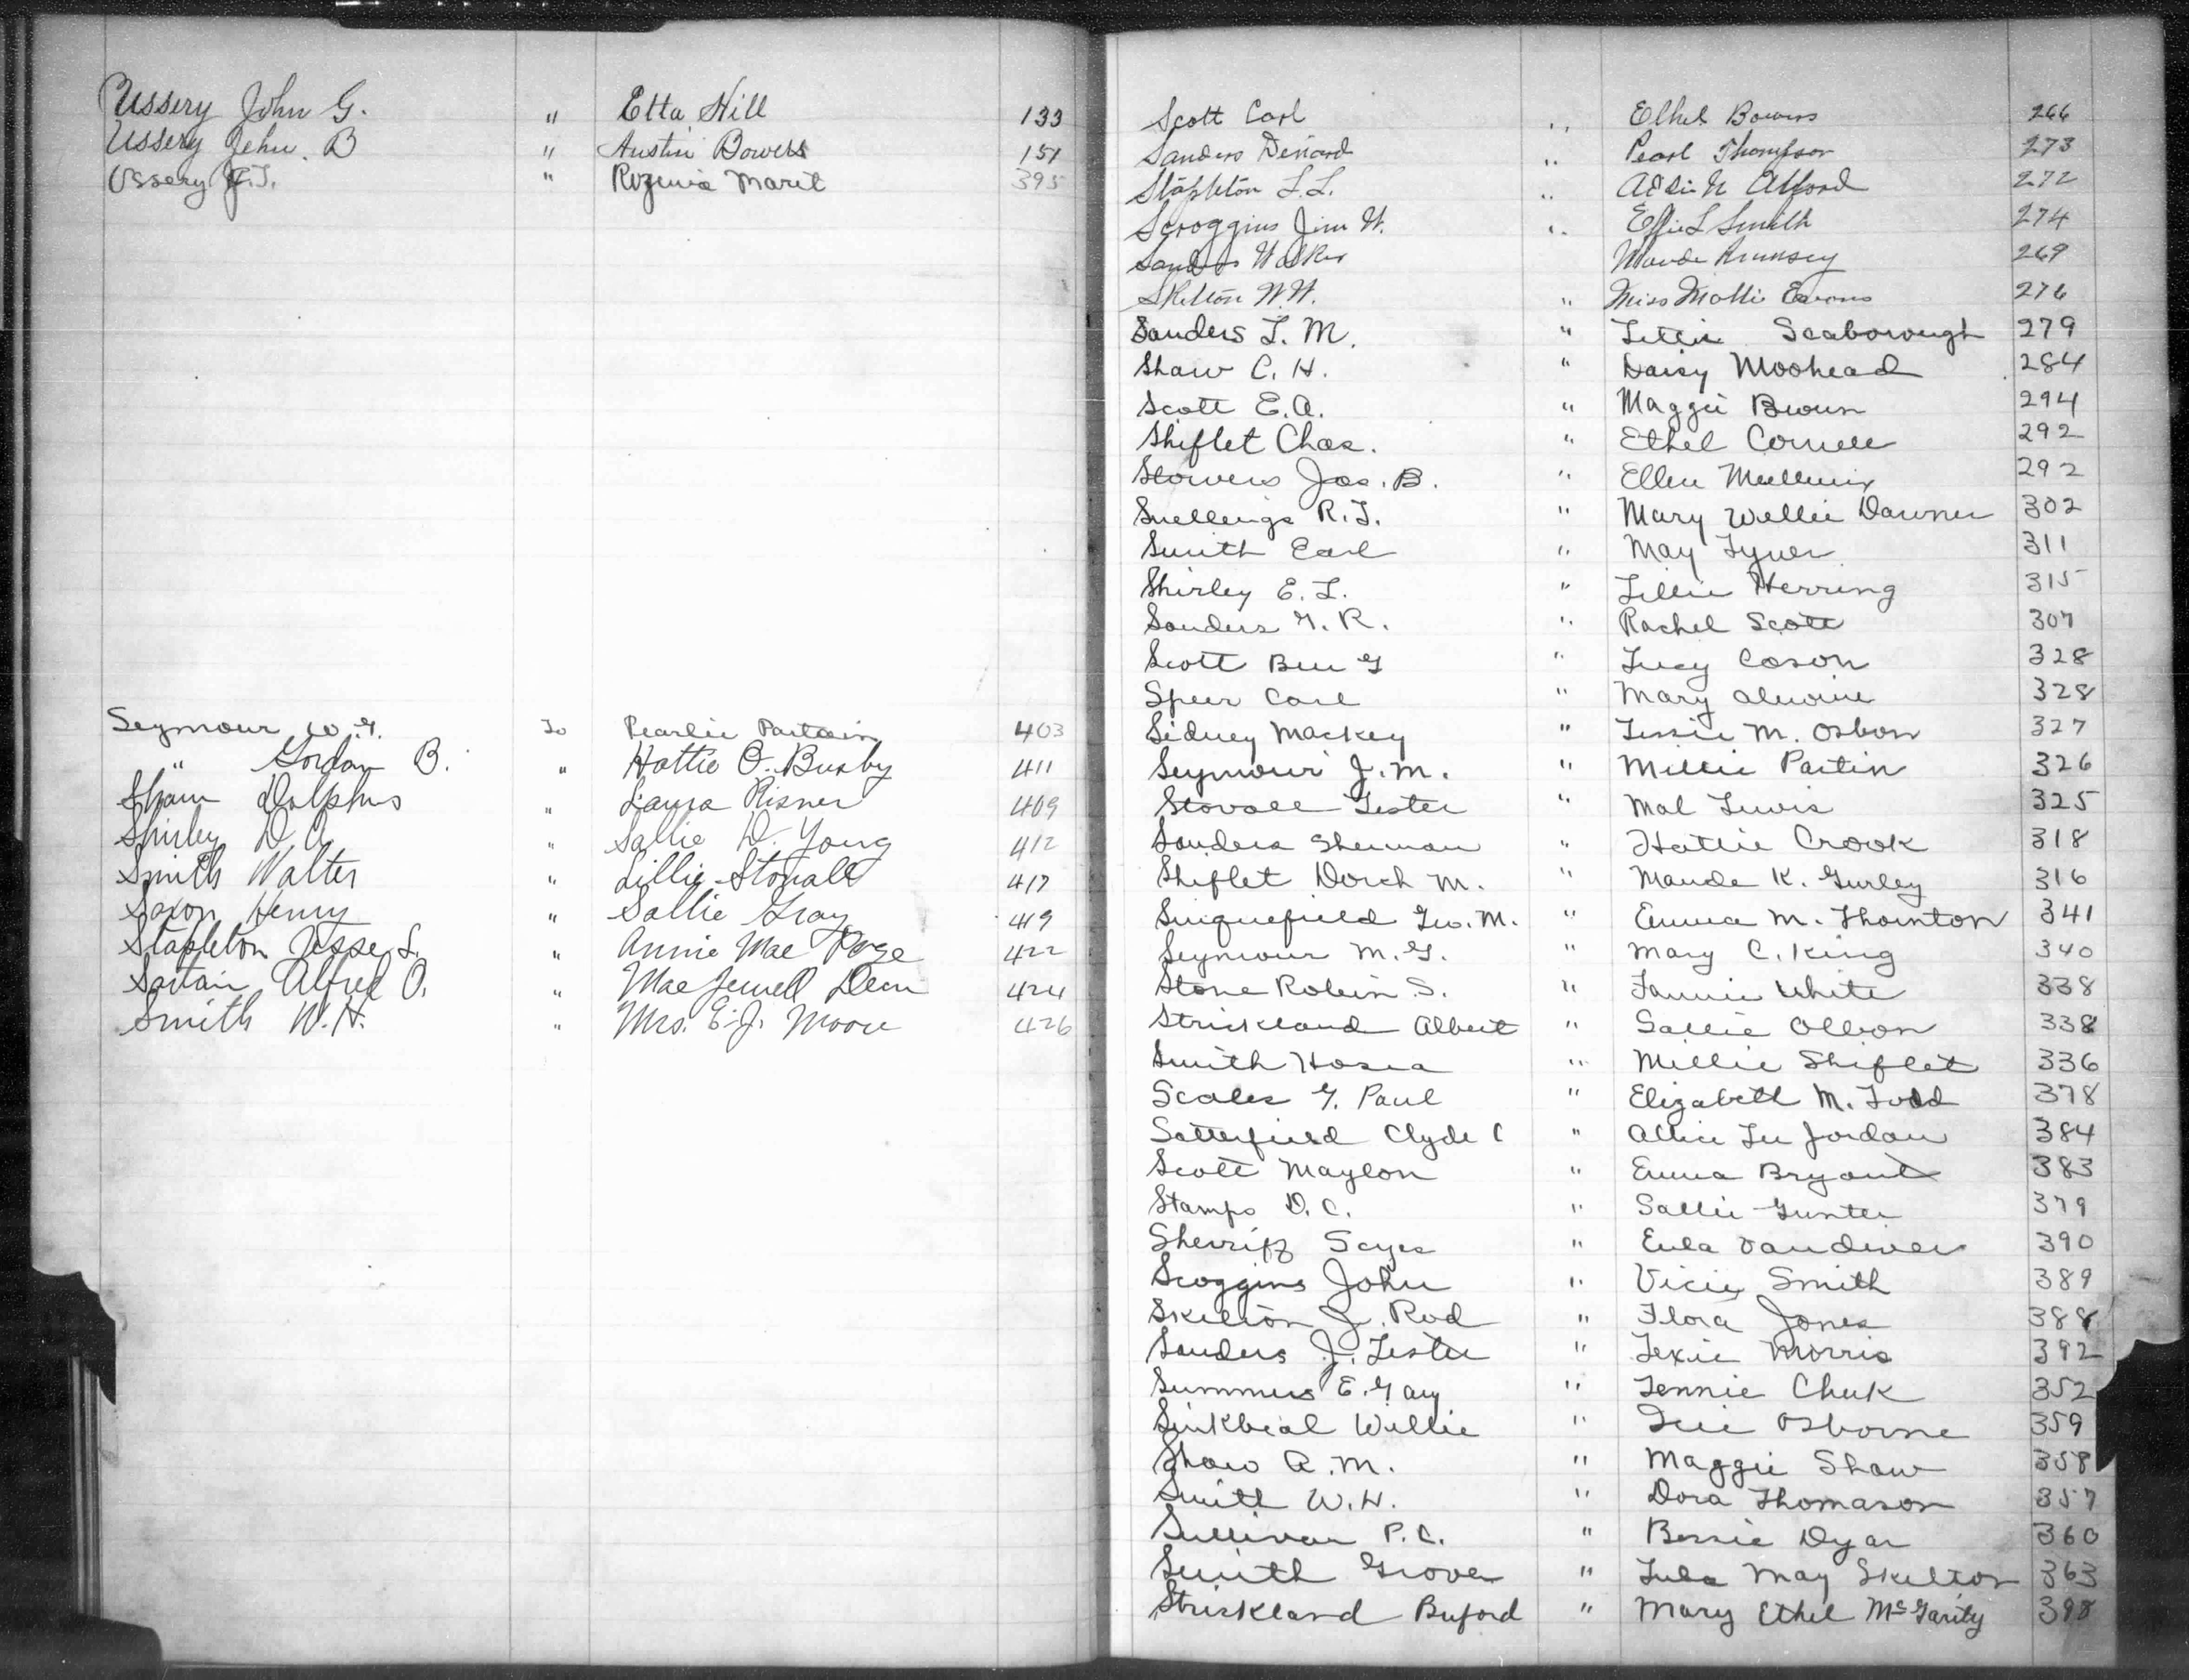 Ussery John G. " Etta Hill 133
Ussery John B " Austin Bowers 151
Ussery J.T. " Marit 395
Seymour W.G. To Pearlie Partain 403
" Gordan B. " Hattie O. Busby 411
Sham Dolphus " Laura Risner 409
Shirley D A " Sallie D. Young 412
Smith Walter " Lillie Stovall 417
Saxon Henry " Sallie Gray 419
Stapleton Jesse L. " Annie Mae Poge 422
Sartain Alfred O. " Mae Jewell Dean 424
Smith W.H. " Mrs. E.J. Moore 426
Scott Carl " Ethel Bowers 266
Sanders Denard " Pearl Thompson 273
Stapleton L.L. " Addie N Alford 272
Scroggins Jim W. " Effie L Smith 274
Sanders Walker Maude Rumsey 269
Skelton W.H. " Miss Mollie Evans 276
Sanders L. M. " Lettie Scaborough 279
Shaw C. H. " Daisy Moohead 284
Scott E.A. " Maggie Brown 294
Shiflet Chas. " Ethel Cornell 292
Stowers Jas. B. " Ellen Mullinix 292
Snellings R.J. " Mary Willie Downer 302
Smith Earl " May Tyner 311
Shirley E. L. " Lillie Herring 315
Sanders G. R. " Rachel Scott 307
Scott Ben G " Lucy Cason 328
Speer Carl " Mary Alewine 328
Sidney Mackey " Jessie M. Osbon 327
Seymour J. M. " Millie Partin 326
Stovall Lester " Mal Lewis 325
Sanders Sherman " Hattie Crook 318
Shiflet Dorch M. " Maude K. Gurley 316
Sinquefield Geo. M. " Emma M. Thornton 341
Seymour M. G. " Mary C. King 340
Stone Robin S. " Fannie White 338
Strickland Albert " Sallie Ollbon 338
Smith Hosea " Millie Shiflet 336
Scales G. Paul " Elizabeth M. Todd 378
Satterfield Clyde C " Allie Lee Jordan 384
Scott Maylon " Emma Bryant 383
Stamps D. C. " Sallie Gunter 379
Sherriff Sayes " Eula Vandiver 390
Scoggins John " Vicie Smith 389
Skelton J. Rod " Flora Jones 388
Sanders J. Lester " Lexie Morris 392
Summers E. Gary " Jennie Cheek 352
Sinkbeal Willie " Osborne 359
Shaw A. M. " Maggie Shaw 358
Smith W. H. " Dora Thomason 357
Sullivan P. C. " Bessie Dyar 360
Smith Grover " Lula May Skelton 363
Strickland Buford " Mary Ethel McGarity 398